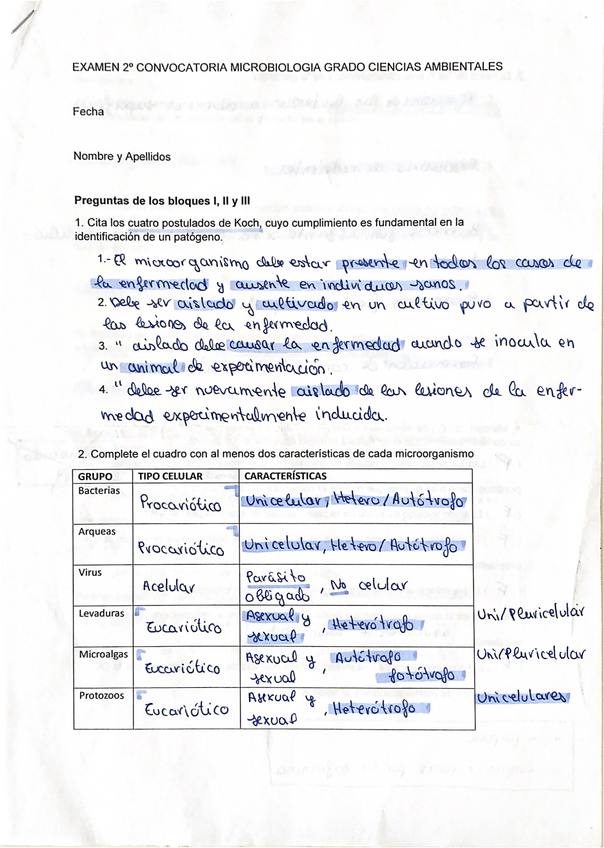 EXAMEN 2º CONVOCATORIA MICROBIOLOGIA GRADO CIENCIAS AMBIENTALES
Fecha
Nombre y Apellidos
Preguntas de los bloques I, II y III
1. Cita los cuatro postulados de Koch, cuyo cumplimiento es fundamental en la
identificación de un patógeno.
1.- El microorganismo debe estar presente en todos los casos de
la enfermedad y ausente en individuos sanos.
2. Debe ser aislado y cultivado en un cultivo puro a partir de
las lesiones de la enfermedad.
3. " aislado debe causar la enfermedad cuando se inocula en
un animal de experimentación.
4. " debe ser nuevamente aislado de las lesiones de la enfer-
medad experimentalmente inducida.
2. Complete el cuadro con al menos dos características de cada microorganismo
GRUPO TIPO CELULAR CARACTERÍSTICAS
Bacterias Procariótico Unicelular, Hetero/Autótrofo
Arqueas Procariótico Unicelular, Hetero/Autótrofo
Virus Acelular Parásito
obligado, No celular
Levaduras Eucariótico Asexual y
sexual, Heterótrofo Uni/Pluricelular
Microalgas Eucariótico Asexual y
sexual, Autótrofo
fotótrofo Uni/Pluricelular
Protozoos Eucariótico Asexual y
sexual, Heterótrofo Unicelulares